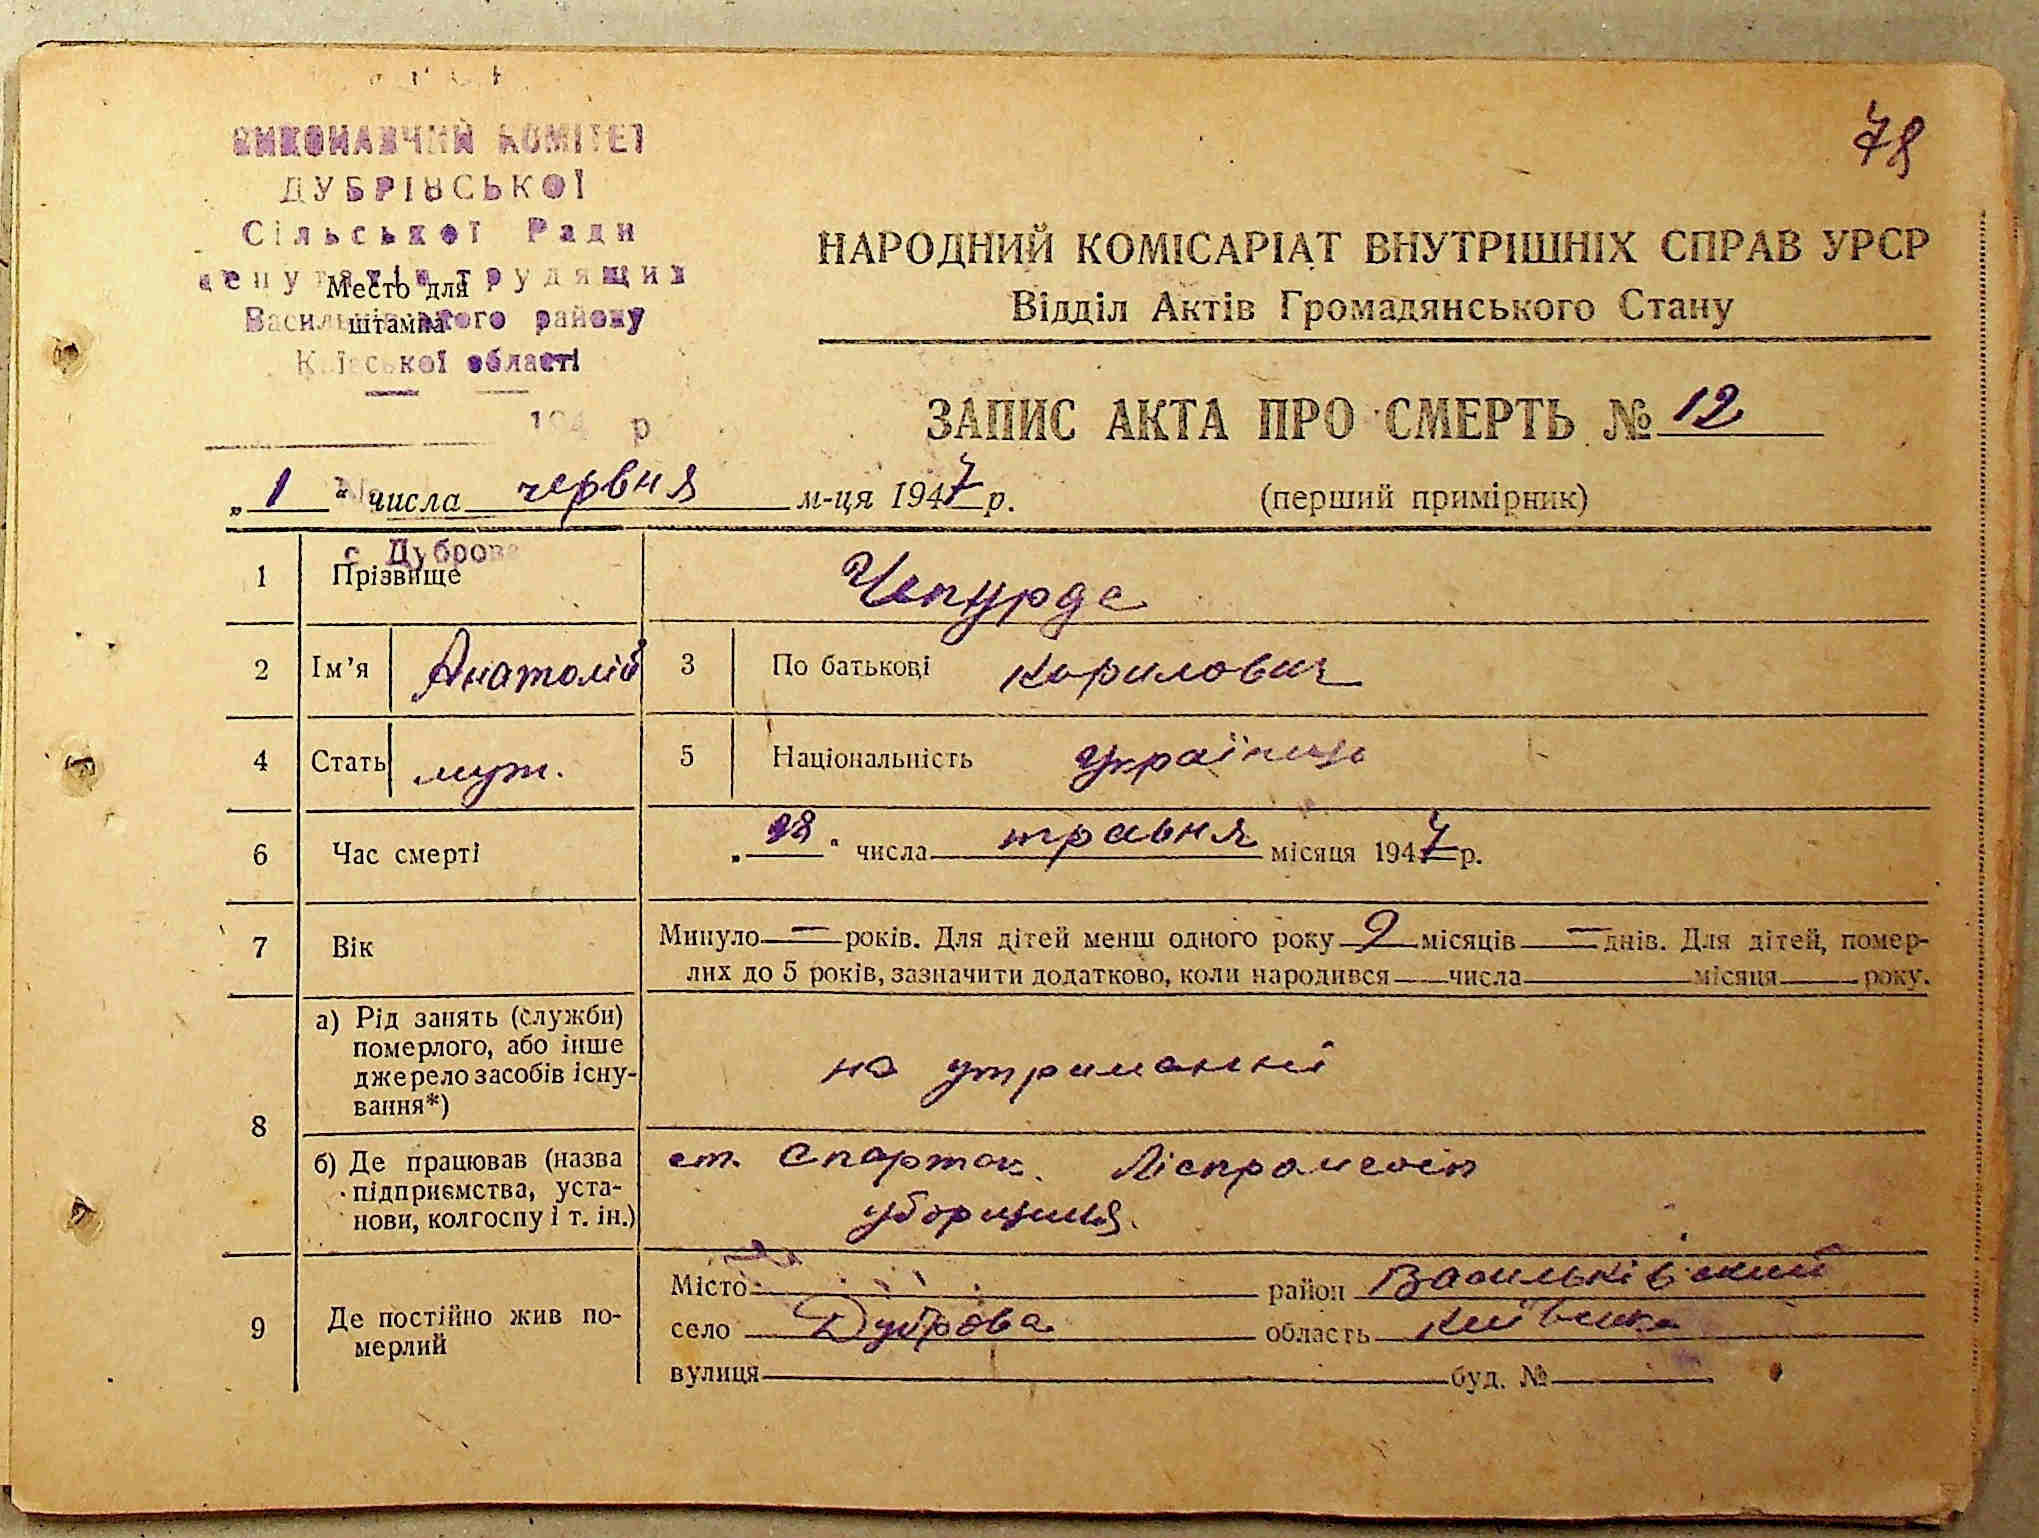 78
ВИКОНАВЧИЙ КОМІТЕТ
ДУБРІВСЬКОЇ
Сільської Ради
депутатів трудящих
Васильківського району
Київської області
Место для
штампа
194 р
НАРОДНИЙ КОМІСАРІАТ ВНУТРІШНІХ СПРАВ УРСР
Відділ Актів Громадянського Стану
ЗАПИС АКТА ПРО СМЕРТЬ № 12
„1“ числа червня м-ця 1947 р.
(перший примірник)
с Дуброва
1 Прізвище Чепурде
2 Ім’я Анатолій 3 По батькові Кирилович
4 Стать муж. 5 Національність Українець
6 Час смерті „28“ числа травня місяця 1947 р.
7 Вік Минуло — років. Для дітей менш одного року 9 місяців — днів. Для дітей, помер-
лих до 5 років, зазначити додатково, коли народився числа місяця року.
8 а) Рід занять (служби)
померлого, або інше
джерело засобів існу-
вання*)
на утриманні
б) Де працював (назва
підприємства, уста-
нови, колгоспу і т. ін.)
ст. Спартак
уборщиця.
9 Де постійно жив по-
мерлий
Місто район Васильківський
село Дуброва область Київська
вулиця буд. №